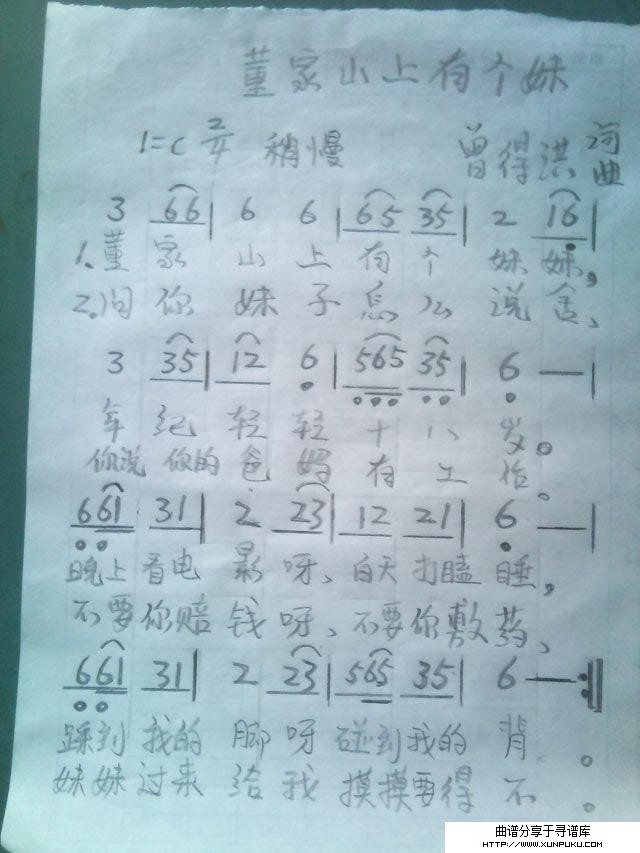 董家山上有个妹
1=C 2/4 稍慢 曾得洪 词曲
3 66 | 6 6 | 65 35 | 2 16 |
1.董 家 山 上 有 个 妹 妹,
2.问 你 妹 子 怎 么 说 舍、
3 35 | 12 6 | 565 35 | 6 — |
年 纪 轻 轻 十 八 岁。
你说 你的 爸 妈 有 工 作。
661 31 | 2 23 | 12 21 | 6 — |
晚上 看电 影 呀、白天 打瞌 睡,
不要 你赔 钱 呀、不要 你敷 药、
661 31 | 2 23 | 565 35 | 6 — :‖
踩到 我的 脚 呀 碰到 我的 背。
妹妹 过来 给 我 摸摸 要得 不。
曲谱分享于寻谱库
HTTP://WWW.XUNPUKU.COM